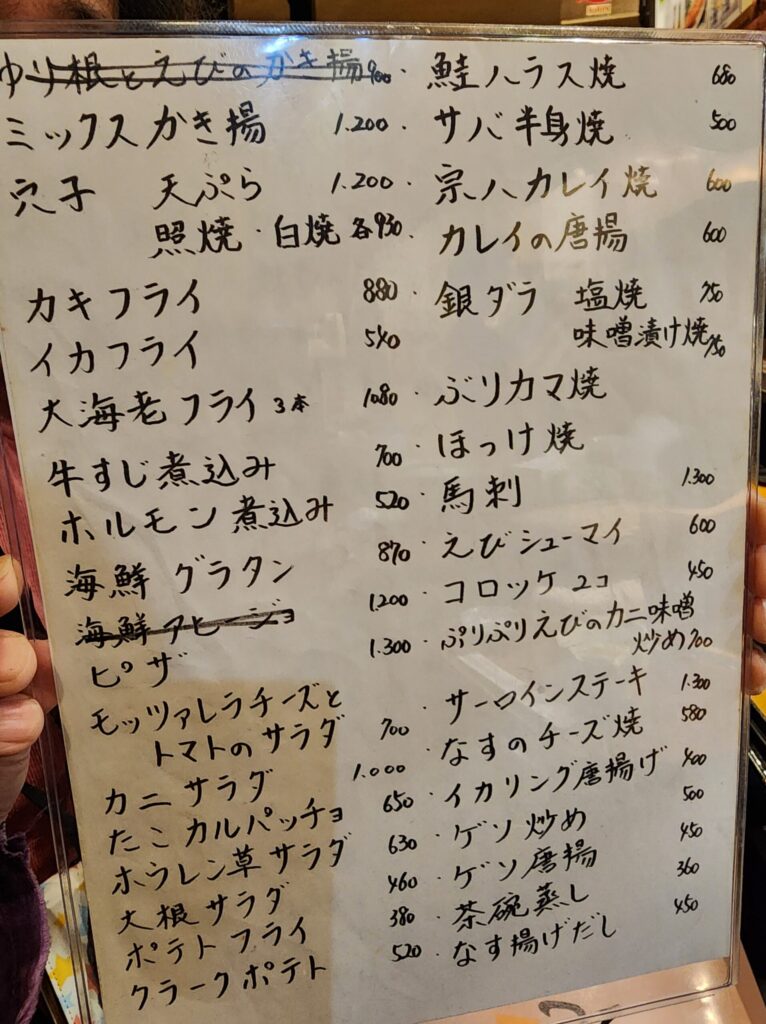 ゆり根とえびのかき揚 900
ミックスかき揚 1.200
穴子 天ぷら 1.200
照焼・白焼 各930
カキフライ 880
イカフライ 540
大海老フライ 3本 1080
牛すじ煮込み 700
ホルモン煮込み 520
海鮮グラタン 870
海鮮アヒージョ 1200
ピザ 1.300
モッツァレラチーズと
トマトのサラダ 700
カニサラダ 1.000
たこカルパッチョ 650
ホウレン草サラダ 630
大根サラダ 460
ポテトフライ 380
クラークポテト 520
・鮭ハラス焼 680
・サバ半身焼 500
・宗ハカレイ焼 600
・カレイの唐揚 600
・銀ダラ 塩焼 750
味噌漬け焼 750
・ぶりカマ焼
・ほっけ焼
・馬刺 1.300
・えびシューマイ 600
・コロッケ 2コ 450
・ぷりぷりえびのカニ味噌
炒め 700
・サーロインステーキ 1.300
・なすのチーズ焼 580
・イカリング唐揚げ 400
・ゲソ炒め 500
・ゲソ唐揚 450
・茶碗蒸し 360
・なす揚げだし 450